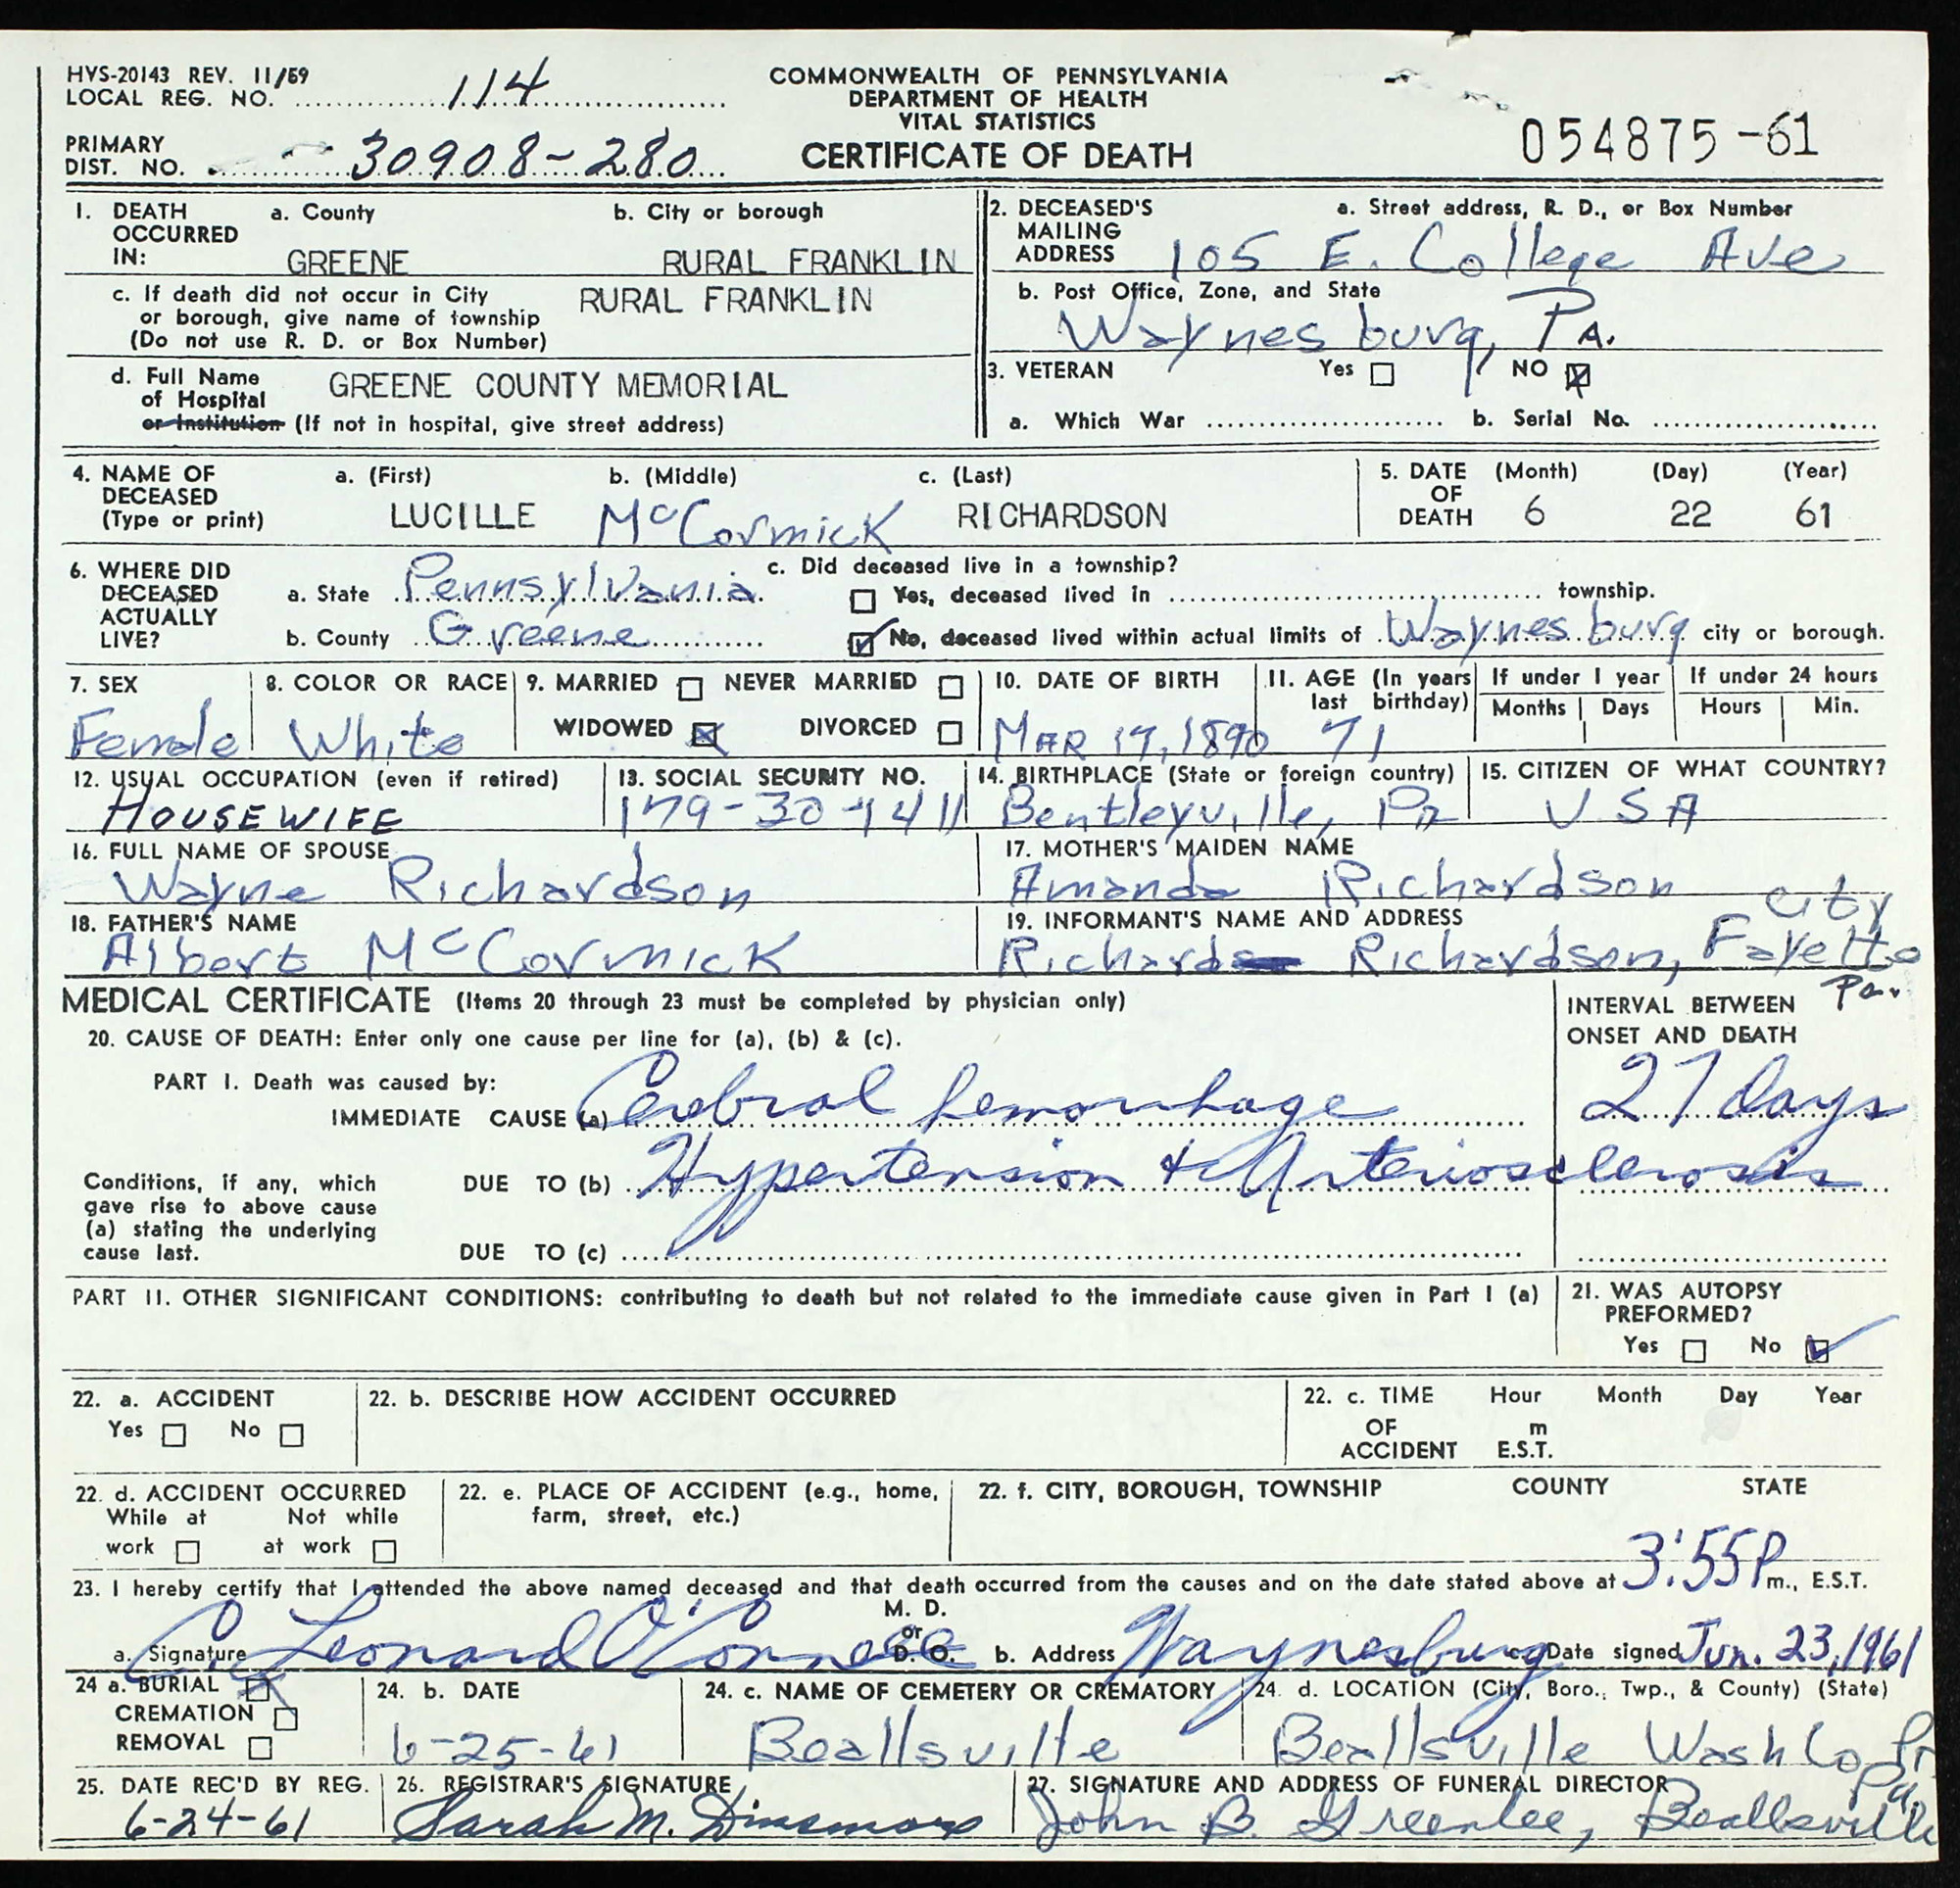 HVS-20143 REV. 11/59
LOCAL REG. NO. 114
COMMONWEALTH OF PENNSYLVANIA
DEPARTMENT OF HEALTH
VITAL STATISTICS
CERTIFICATE OF DEATH
PRIMARY
DIST. NO. 30908-280
054875-61
1. DEATH OCCURRED IN: a. County GREENE b. City or borough RURAL FRANKLIN
c. If death did not occur in City RURAL FRANKLIN
or borough, give name of township
(Do not use R. D. or Box Number)
d. Full Name GREENE COUNTY MEMORIAL
of Hospital
or Institution (If not in hospital, give street address)
2. DECEASED'S MAILING ADDRESS a. Street address, R. D., or Box Number
105 E. College Ave
b. Post Office, Zone, and State
Waynesburg, Pa.
3. VETERAN Yes NO
a. Which War b. Serial No.
4. NAME OF DECEASED (Type or print) a. (First) b. (Middle) c. (Last)
LUCILLE McCormick RICHARDSON
5. DATE OF DEATH (Month) (Day) (Year)
6 22 61
6. WHERE DID DECEASED ACTUALLY LIVE?
a. State Pennsylvania
b. County Greene
c. Did deceased live in a township?
Yes, deceased lived in township.
No, deceased lived within actual limits of Waynesburg city or borough.
7. SEX
Female
8. COLOR OR RACE
White
9. MARRIED NEVER MARRIED
WIDOWED DIVORCED
10. DATE OF BIRTH
11. AGE (In years last birthday)
71
If under 1 year
Months Days
If under 24 hours
Hours Min.
12. USUAL OCCUPATION (even if retired)
HOUSEWIFE
13. SOCIAL SECURITY NO.
14. BIRTHPLACE (State or foreign country)
Bentleyville, Pa
15. CITIZEN OF WHAT COUNTRY?
USA
16. FULL NAME OF SPOUSE
Wayne Richardson
17. MOTHER'S MAIDEN NAME
Amanda Richardson
18. FATHER'S NAME
Albert McCormick
19. INFORMANT'S NAME AND ADDRESS
Richard Richardson, Fayette City
Pa.
MEDICAL CERTIFICATE (Items 20 through 23 must be completed by physician only)
INTERVAL BETWEEN
ONSET AND DEATH
20. CAUSE OF DEATH: Enter only one cause per line for (a), (b) & (c).
PART I. Death was caused by:
IMMEDIATE CAUSE (a) Cerebral hemorrhage 27 days
Conditions, if any, which
gave rise to above cause
(a) stating the underlying
cause last.
DUE TO (b) Hypertension & Arteriosclerosis
DUE TO (c)
PART II. OTHER SIGNIFICANT CONDITIONS: contributing to death but not related to the immediate cause given in Part I (a)
21. WAS AUTOPSY
PREFORMED?
Yes No
22. a. ACCIDENT
Yes No
22. b. DESCRIBE HOW ACCIDENT OCCURRED
22. c. TIME OF ACCIDENT Hour Month Day Year
m
E.S.T.
22. d. ACCIDENT OCCURRED
While at work Not while at work
22. e. PLACE OF ACCIDENT (e.g., home,
farm, street, etc.)
22. f. CITY, BOROUGH, TOWNSHIP COUNTY STATE
23. I hereby certify that I attended the above named deceased and that death occurred from the causes and on the date stated above at 3:55 P m., E.S.T.
a. Signature C. Leonard O'Connell M. D. or D. O. b. Address Waynesburg c. Date signed Jun. 23, 1961
24 a. BURIAL
CREMATION
REMOVAL
24. b. DATE
6-25-61
24. c. NAME OF CEMETERY OR CREMATORY
Beallsville
24. d. LOCATION (City, Boro., Twp., & County) (State)
Beallsville Wash Co Pa
25. DATE REC'D BY REG.
6-24-61
26. REGISTRAR'S SIGNATURE
Sarah M. Dinsmore
27. SIGNATURE AND ADDRESS OF FUNERAL DIRECTOR
John B. Greenlee, Beallsville Pa.